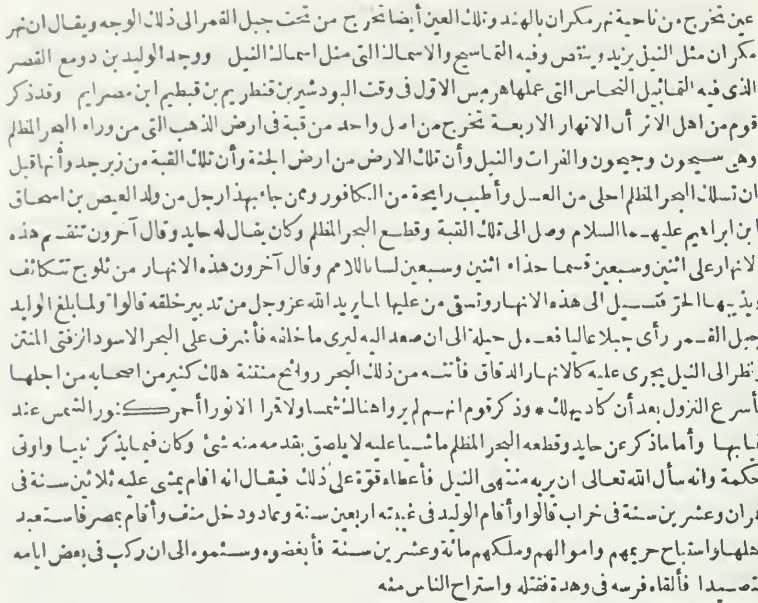 عين تخرج من ناحية نهر مكران بالهند وتلك العين أيضا تخرج من تحت جبل القمر الى ذلك الوجه ويقال ان نهر
مكران مثل النيل يزيد وينقص وفيه التماسيح والاسماك التى مثل اسماك النيل ووجد الوليد بن دومع القصر
الذى فيه التماثيل النحاس التى عملها هرمس الاول فى وقت البودشير بن قنطريم بن قبطيم ابن مصرايم وقد ذكر
قوم من اهل الاثر أن الانهار الاربعة تخرج من اصل واحد من قبة فى ارض الذهب التى من وراء البحر المظلم
وهى سيحون وجيحون والفرات والنيل وأن تلك الارض من ارض الجنة وأن تلك القبة من زبرجد وأنها قبل
ان تسلك البحر المظلم احلى من العسل وأطيب رايحة من الكافور وممن جاء بهذا رجل من ولد العيص بن اسحاق
ابن ابراهيم عليهما السلام وصل الى تلك القبة وقطع البحر المظلم وكان يقال له حايد وقال آخرون تنقسم هذه
الانهار على اثنين وسبعين قسما حذاء اثنين وسبعين لسانا للامم وقال آخرون هذه الانهار من ثلوج تتكاثف
ويذيبها الحرّ فتسيل الى هذه الانهار وتسقى من عليها لما يريد الله عز وجل من تدبير خلقه قالوا ولما بلغ الوليد
جبل القمر رأى جبلا عاليا فعمل حيلة الى ان صعد اليه ليرى ما خلفه فأشرف على البحر الاسود الزفتى المنتن
ونظر الى النيل يجرى عليه كالانهار الدقاق فأتته من ذلك البحر روائح منتنة هلك كثير من اصحابه من اجلها
فأسرع النزول بعد أن كاد يهلك * وذكر قوم انهم لم يروا هناك شمسا ولا قرا الا نورا أحمر كنور الشمس عند
غيابها وأما ما ذكر عن حايد وقطعه البحر المظلم ماشيا عليه لا يلصق بقدمه منه شئ وكان فيما يذكر نبيا واوتى
حكمة وانه سأل الله تعالى ان يريه منتهى النيل فأعطاه قوّة على ذلك فيقال انه اقام يمشى عليه ثلاثين سنة فى
عمران وعشرين سنة فى خراب قالوا وأقام الوليد فى غيبته اربعين سنة وعاد ودخل منف وأقام بمصر فاستعبد
اهلها واستباح حريمهم واموالهم وملكهم مائة وعشرين سنة فأبغضوه وسئموه الى ان ركب فى بعض ايامه
متصيدا فألقاه فرسه فى وهدة فقتله واستراح الناس منه